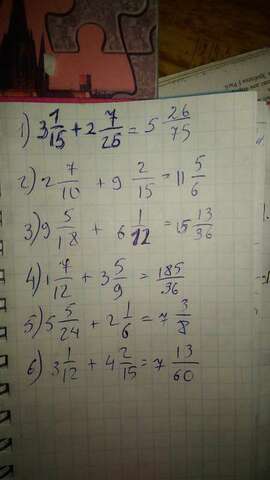 1) 3 1/15 + 2 7/25 = 5 26/75
2) 2 7/10 + 9 2/15 = 11 5/6
3) 9 5/18 + 6 1/12 = 15 13/36
4) 1 7/12 + 3 5/9 = 185/36
5) 5 5/24 + 2 1/6 = 7 3/8
6) 3 1/12 + 4 2/15 = 7 13/60